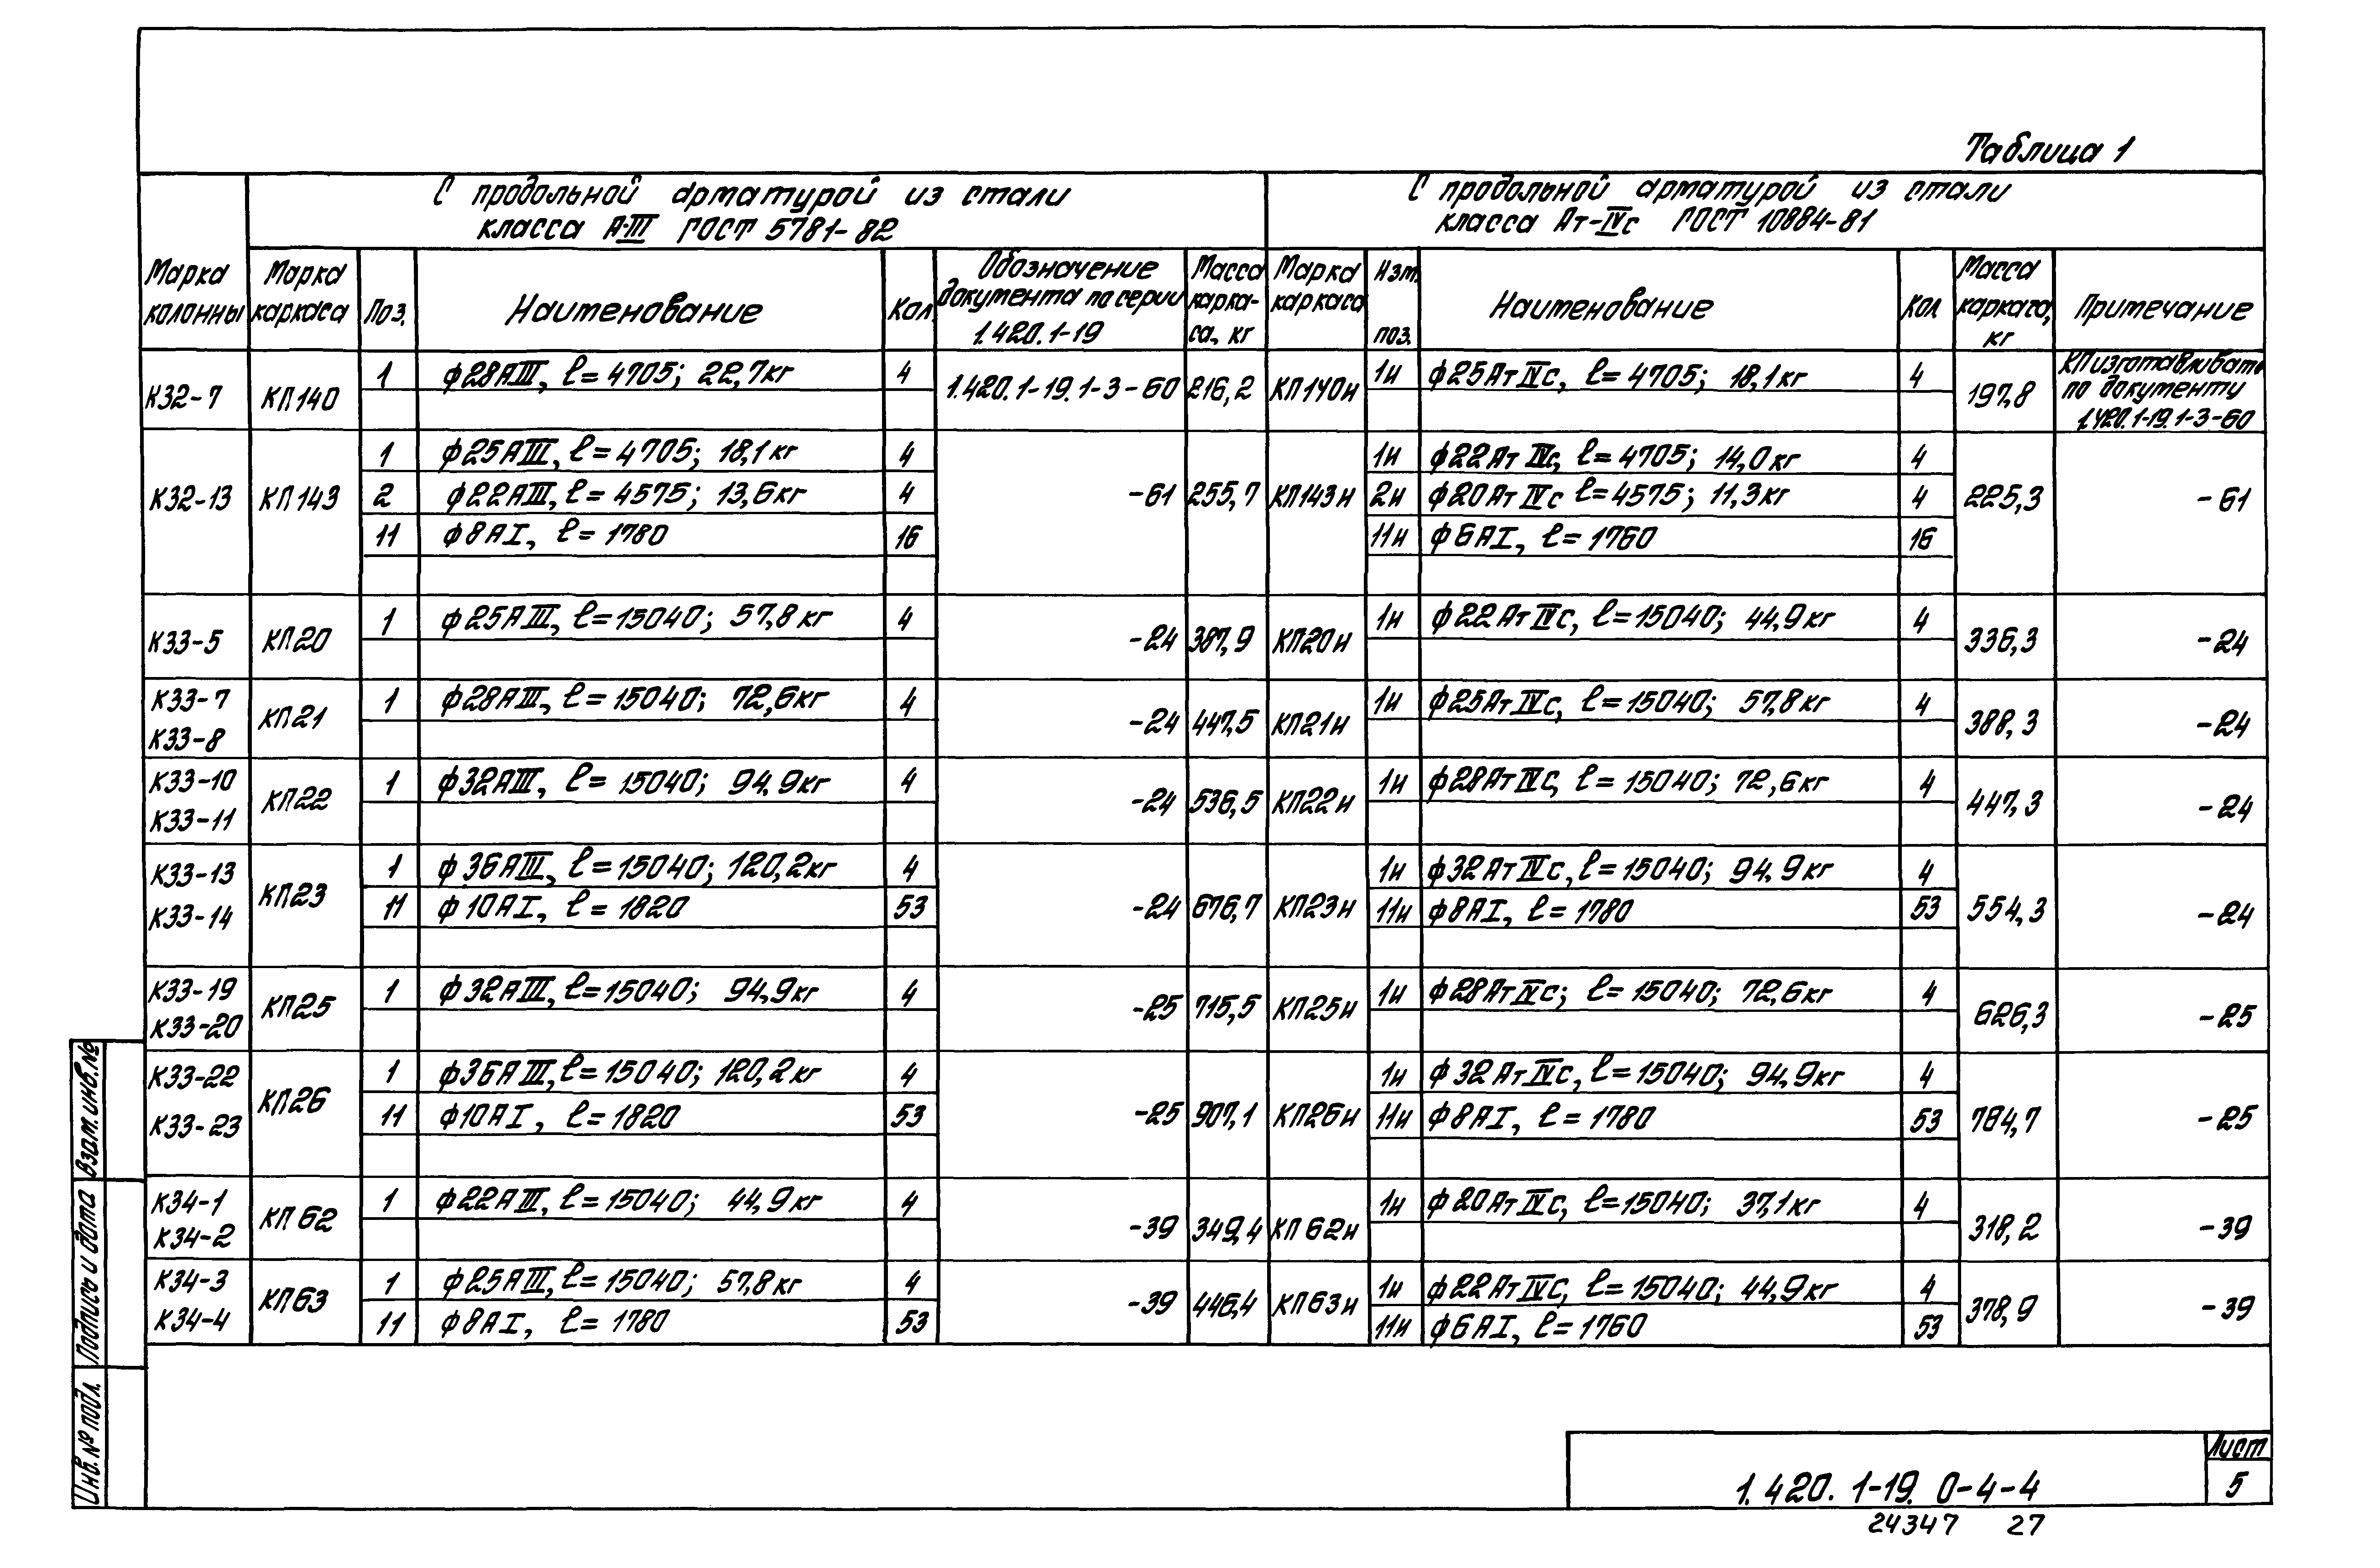 Таблица 1
С продольной арматурой из стали
класса А-III ГОСТ 5781-82
С продольной арматурой из стали
класса Ат-IVс ГОСТ 10884-81
Марка колонны
Марка каркаса
Поз.
Наименование
Кол.
Обозначение документа по серии 1.420.1-19
Масса карка-са, кг
Марка каркаса
Изм. поз.
Наименование
Кол
Масса каркаса, кг
Примечание
К32-7 КП140 1 ф28АIII, ℓ=4705; 22,7кг 4 1.420.1-19.1-3-60 216,2 КП140и 1и ф25АтIVс, ℓ=4705; 18,1кг 4 197,8 КП изготавливать по документу 1.420.1-19.1-3-60
К32-13 КП143 1 ф25АIII, ℓ=4705; 18,1кг 4 -61 255,7 КП143и 1и ф22АтIVс, ℓ=4705; 14,0кг 4 225,3 -61
2 ф22АIII, ℓ=4575; 13,6кг 4 2и ф20АтIVс ℓ=4575; 11,3кг 4
11 ф8АI, ℓ=1780 16 11и ф6АI, ℓ=1760 16
К33-5 КП20 1 ф25АIII, ℓ=15040; 57,8кг 4 -24 387,9 КП20и 1и ф22АтIVс, ℓ=15040; 44,9кг 4 336,3 -24
К33-7 К33-8 КП21 1 ф28АIII, ℓ=15040; 72,6кг 4 -24 447,5 КП21и 1и ф25АтIVс, ℓ=15040; 57,8кг 4 388,3 -24
К33-10 К33-11 КП22 1 ф32АIII, ℓ=15040; 94,9кг 4 -24 536,5 КП22и 1и ф28АтIVс, ℓ=15040; 72,6кг 4 447,3 -24
К33-13 К33-14 КП23 1 ф36АIII, ℓ=15040; 120,2кг 4 -24 676,7 КП23и 1и ф32АтIVс, ℓ=15040; 94,9кг 4 554,3 -24
11 ф10АI, ℓ=1820 53 11и ф8АI, ℓ=1780 53
К33-19 К33-20 КП25 1 ф32АIII, ℓ=15040; 94,9кг 4 -25 715,5 КП25и 1и ф28АтIVс; ℓ=15040; 72,6кг 4 626,3 -25
К33-22 К33-23 КП26 1 ф36АIII, ℓ=15040; 120,2кг 4 -25 907,1 КП26и 1и ф32АтIVс, ℓ=15040; 94,9кг 4 784,7 -25
11 ф10АI, ℓ=1820 53 11и ф8АI, ℓ=1780 53
К34-1 К34-2 КП62 1 ф22АIII, ℓ=15040; 44,9кг 4 -39 349,4 КП62и 1и ф20АтIVс, ℓ=15040; 37,1кг 4 318,2 -39
К34-3 К34-4 КП63 1 ф25АIII, ℓ=15040; 57,8кг 4 -39 446,4 КП63и 1и ф22АтIVс, ℓ=15040; 44,9кг 4 378,9 -39
11 ф8АI, ℓ=1780 53 11и ф6АI, ℓ=1760 53
Взам. инв. №
Подпись и дата
Инв. № подл.
1.420.1-19.0-4-4
Лист
5
24347 27